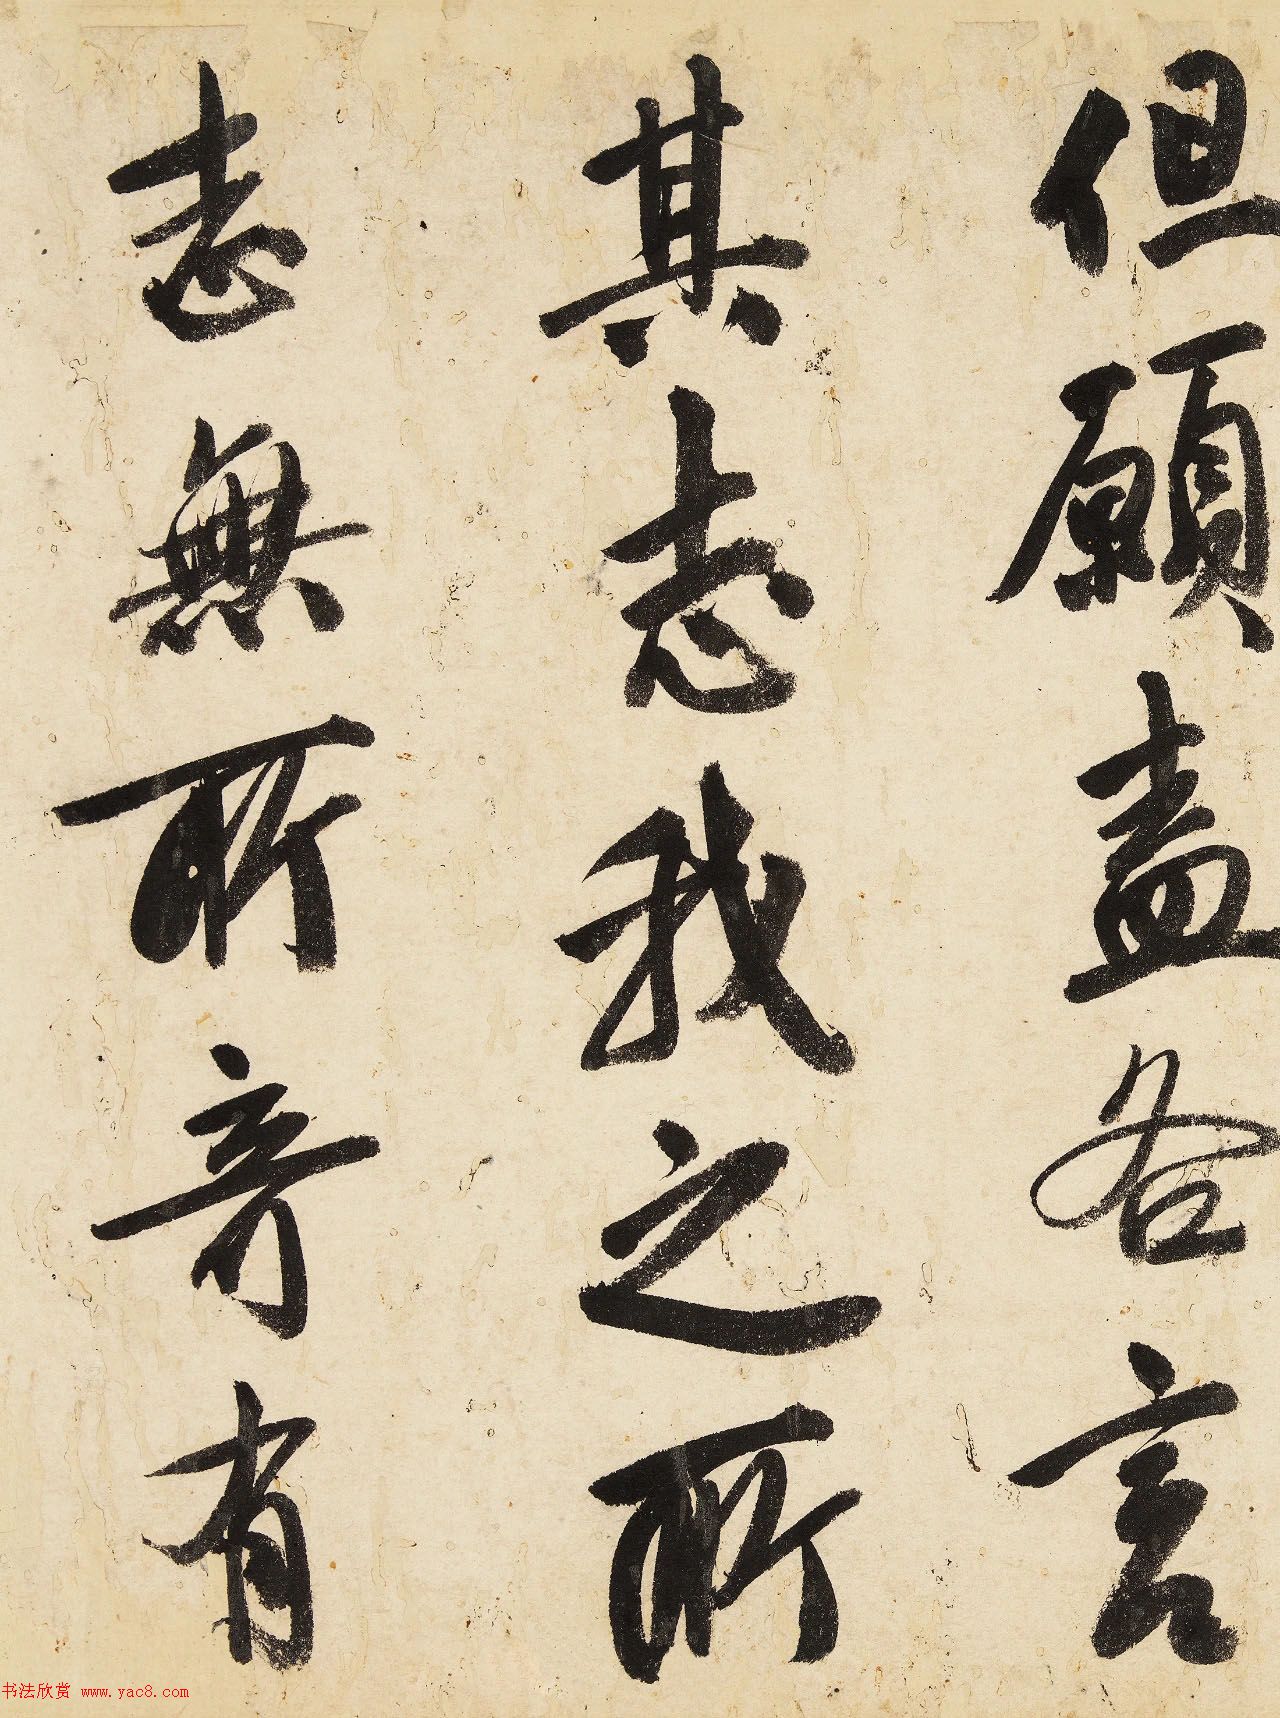 但願盡各言
其志我之所
志無所奇有
书法欣赏 www.yac8.com